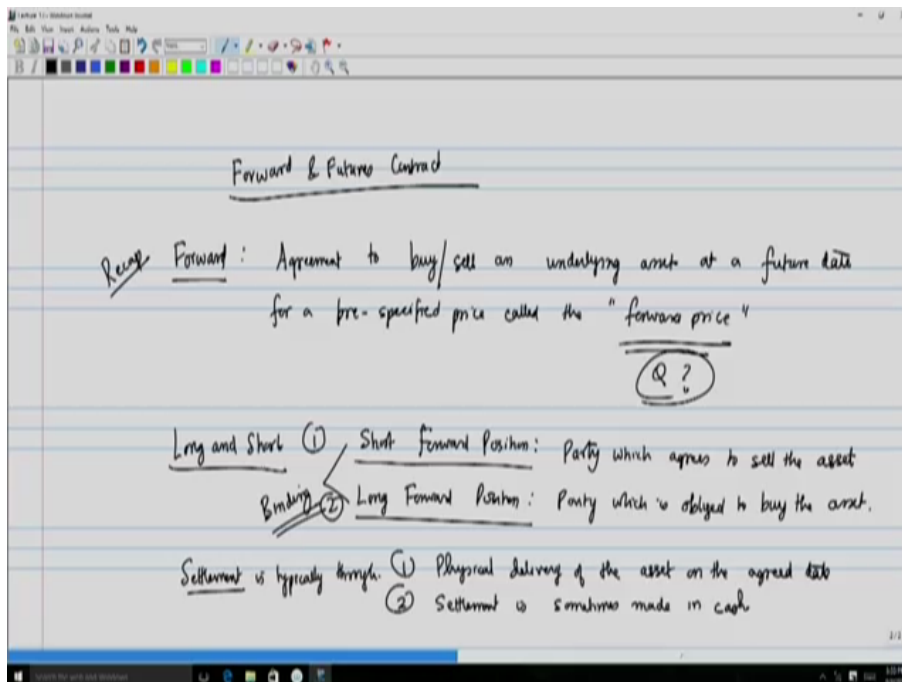 File Edit View Insert Actions Tools Help
B I
Forward & Futures Contract
Recap Forward : Agreement to buy/sell an underlying asset at a future date
for a pre-specified price called the "forward price"
Q ?
Long and Short ① Short Forward Position : Party which agrees to sell the asset
Binding ② Long Forward Position : Party which is obliged to buy the asset.
Settlement is typically through. ① Physical delivery of the asset on the agreed date
② Settlement is sometimes made in cash